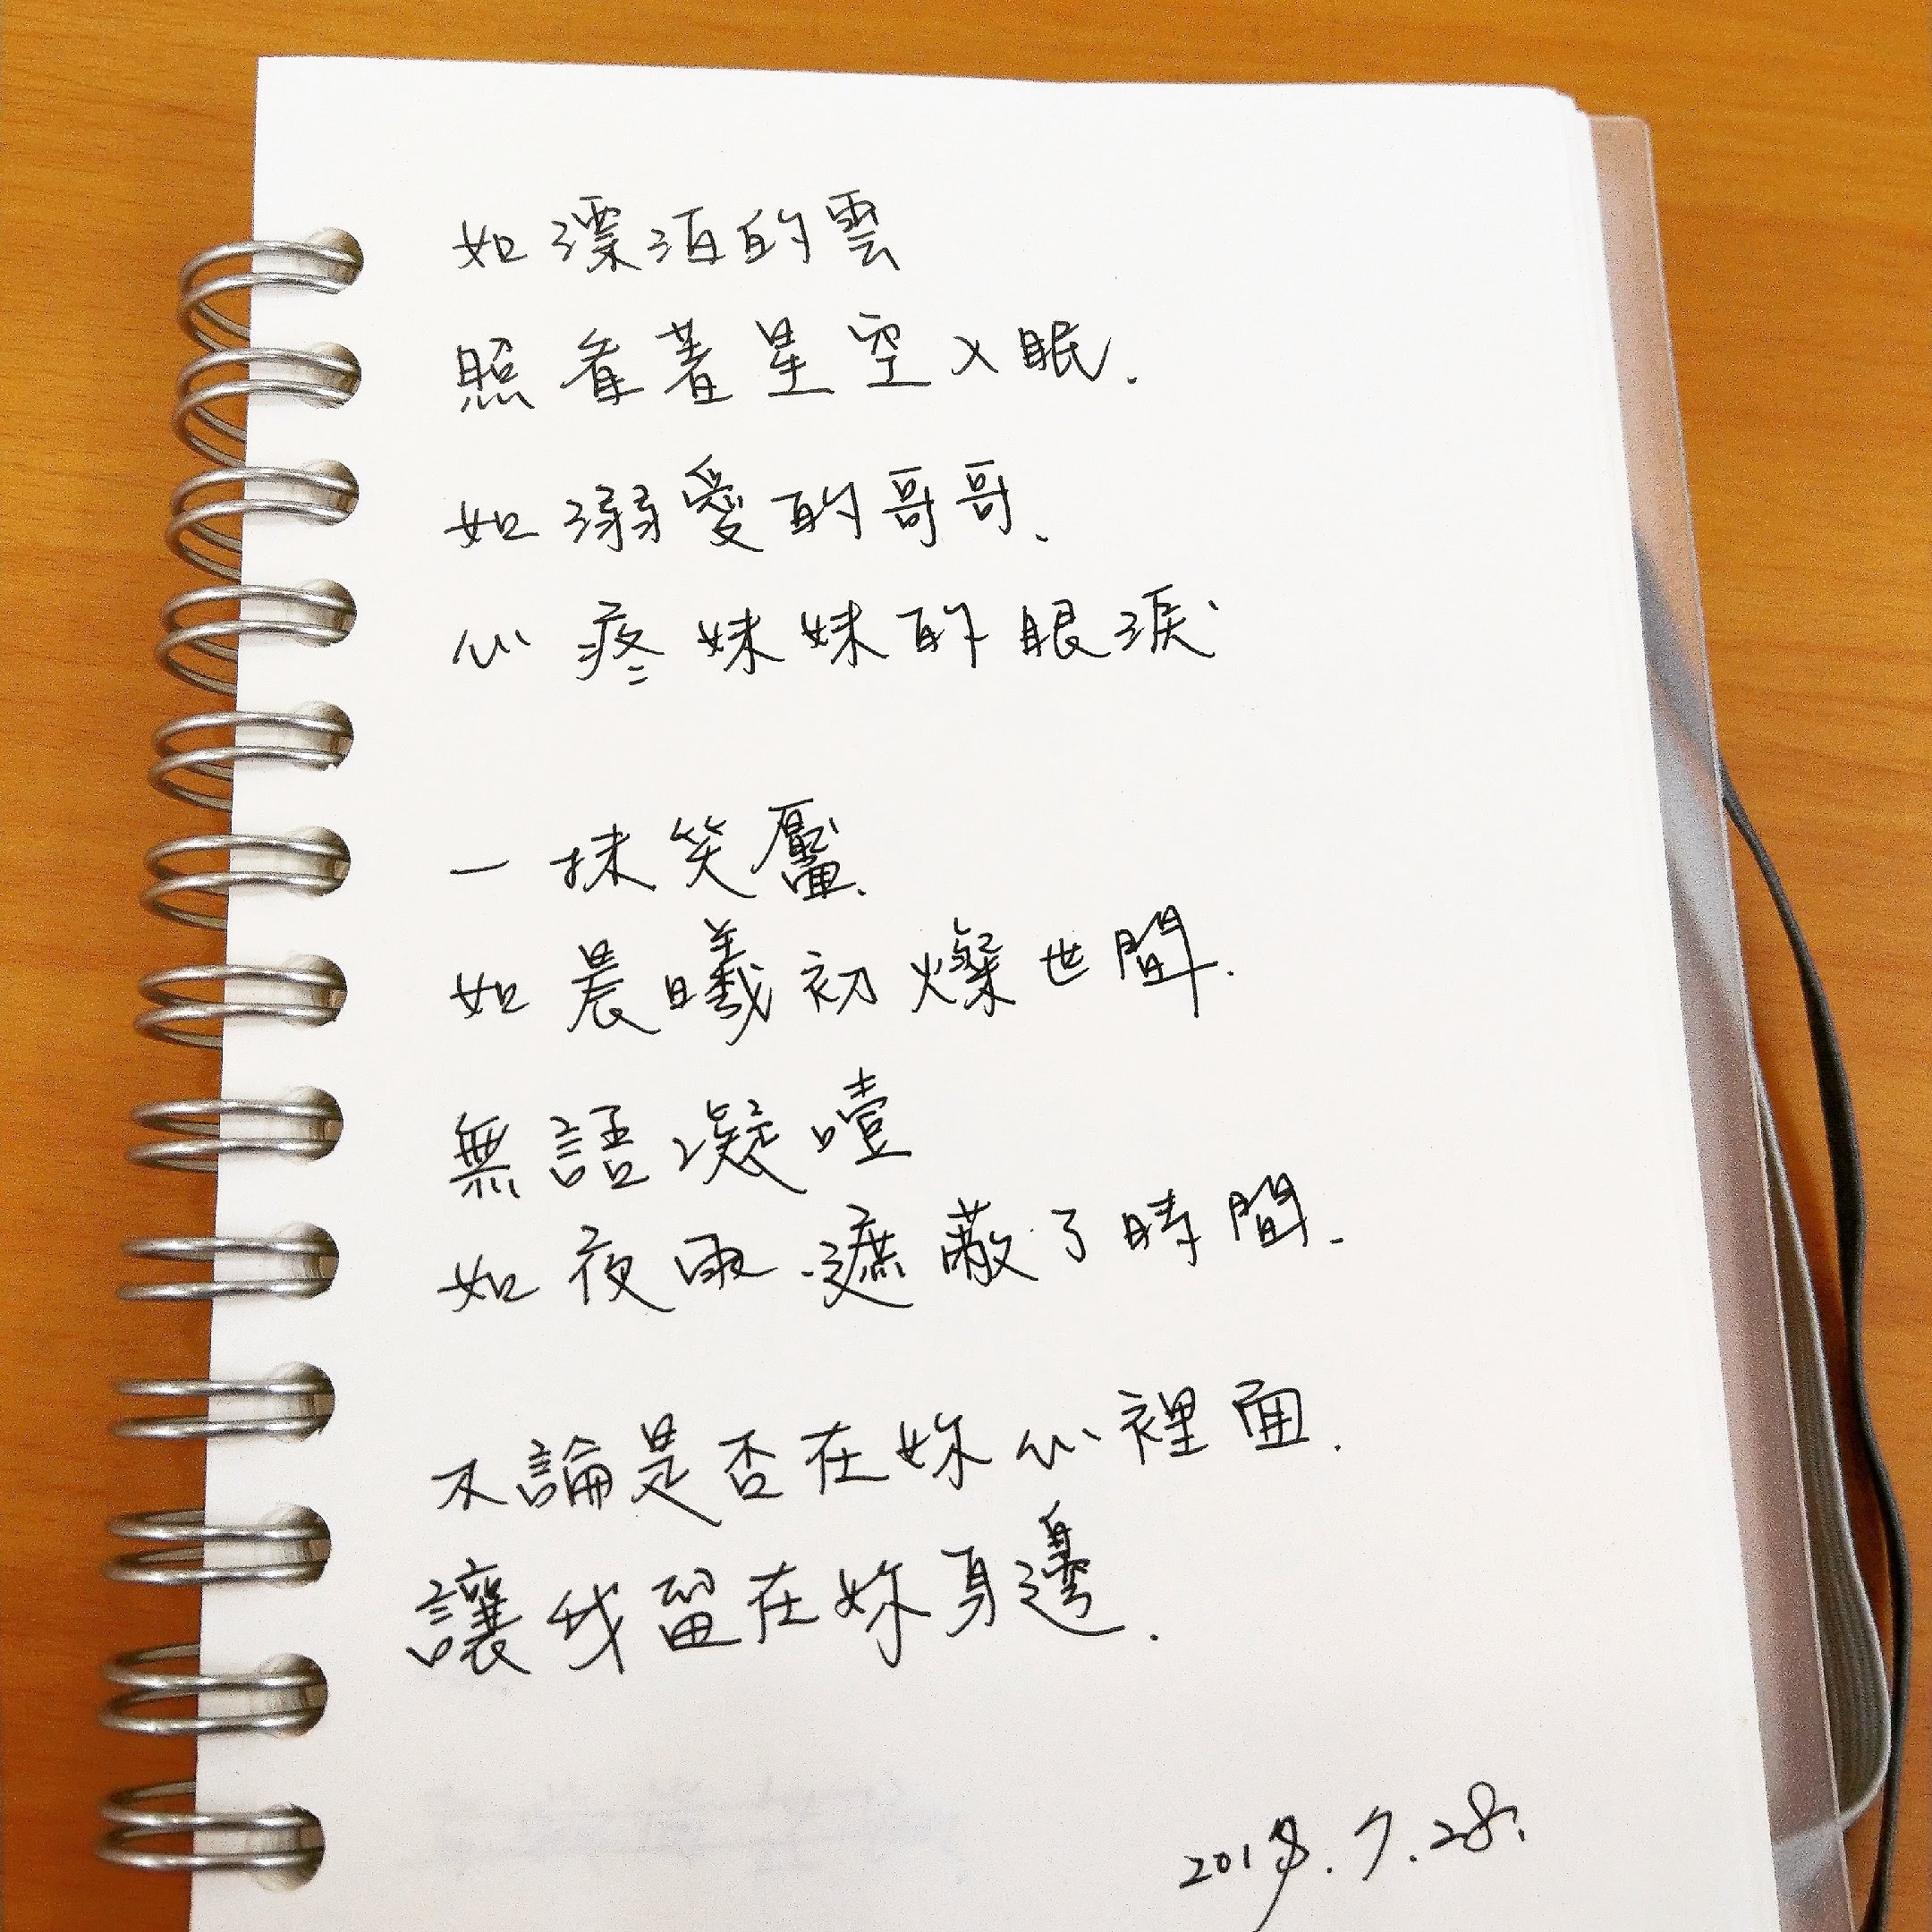 如漂泊的雲
照看著星空入眠.
如溺愛的哥哥、
心疼妹妹的眼淚
一抹笑靨.
如晨曦初燦世間.
無語凝噎
如夜雨遮蔽了時間.
不論是否在妳心裡面.
讓我留在妳身邊.
2018.7.28.